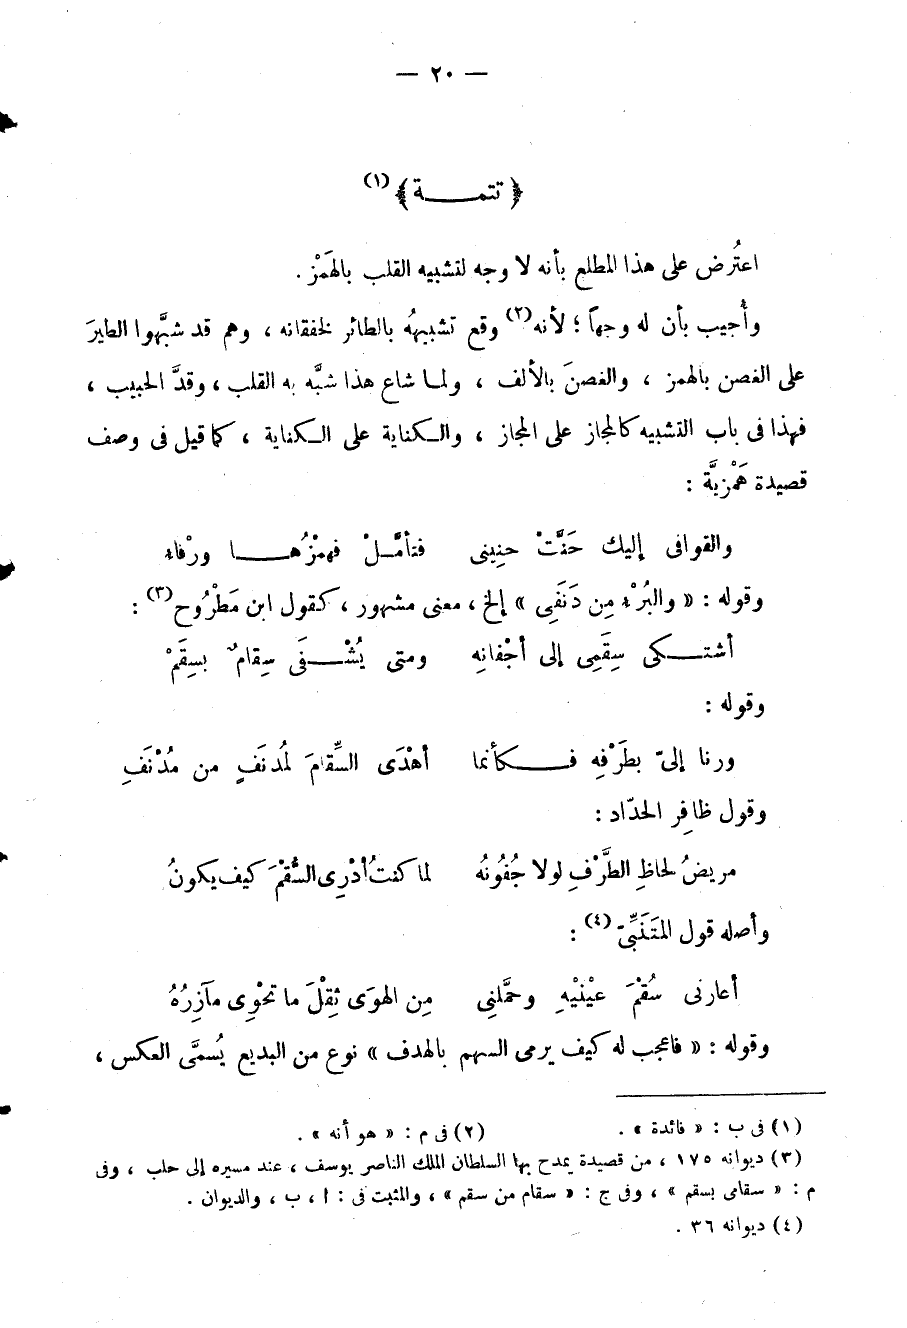 — ٢٠ —
﴿ تتمـــــة ﴾ (١)
اعتُرض على هذا المطلع بأنه لا وجه لتشبيه القلب بالهَمْز .
وأُجيب بأن له وجهاً ؛ لأنه (٢) وقع تشبيههُ بالطائر لخفقانه ، وهم قد شبَّهوا الطيرَ
على الغصن بالهمز ، والغصنَ بالألف ، ولمـا شاع هذا شبَّه به القلب ، وقدَّ الحبيب ،
فهذا فى باب التشبيه كالمجاز على المجاز ، والـكناية على الـكناية ، كما قيل فى وصف
قصيدة هَمْزيَّة :
والقوافى إليك حَنَّتْ حنِينى فتأمَّـلْ فهمْزُهـــا ورْقاء
وقوله : « والبُرْء مِن دَنَفَى » إلخ ، معنى مشهور ، كقول ابن مَطْرُوح (٣) :
أشتـــكى سِقَمِى إلى أجْفانِه ومتى يُشْــفَى سِقامٌ بسِقَمْ
وقوله :
ورنا إلىّ بطَرْفِه فـــكأنما أهْدَى السِّقامَ لمُدنَفٍ من مُدْنَفِ
وقول ظافِر الحدّاد :
مريضُ لحاظِ الطَّرْفِ لولا جُفُونُه لما كنتُ أدْرِى السُّقمْ كيف يكونُ
وأصله قول المتَنَبِّىّ (٤) :
أعارنى سُقْمَ عيْنيْهِ وحمَّلنِى مِن الهوَى ثِقْلَ ما تحْوِى مآزِرُهُ
وقوله : « فاعجب له كيف يرمى السهم بالهدف » نوع من البديع يُسمَّى العكس ،
(١) فى ب : « فائدة » . (٢) فى م : « هو أنه » .
(٣) ديوانه ١٧٥ ، من قصيدة يمدح بها السلطان الملك الناصر يوسف ، عند مسيره إلى حلب ، وفى
م : « سقامى بسقم » ، وفى ج : « سقام من سقم » ، والمثبت فى : ا ، ب ، والديوان .
(٤) ديوانه ٣٦ .